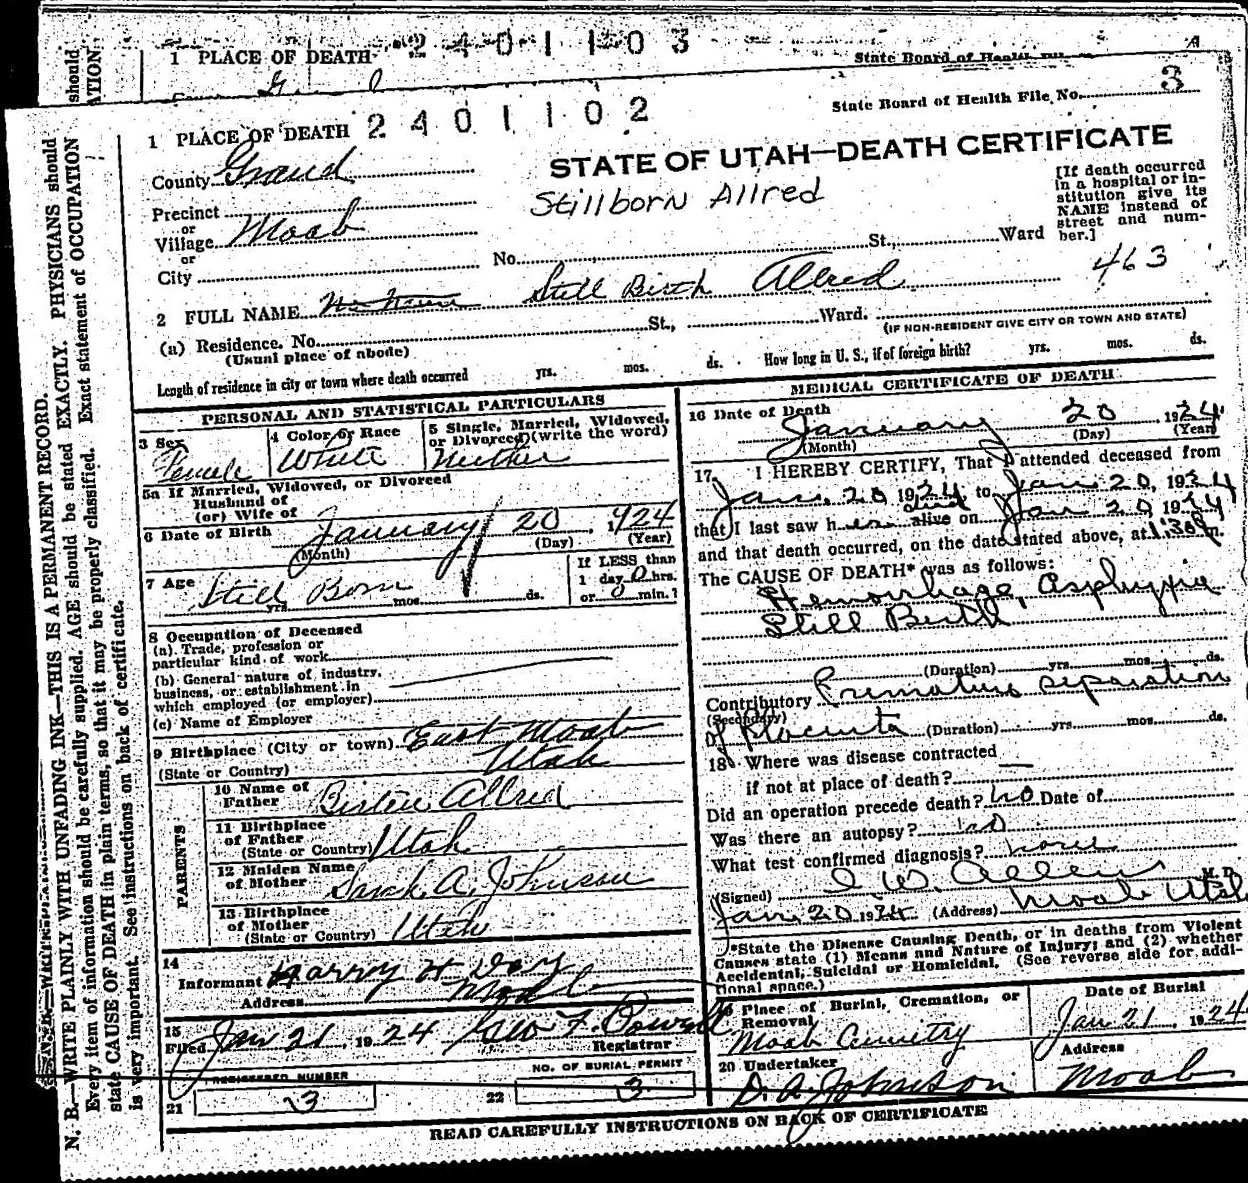 1 PLACE OF DEATH 2401103
State Board of Health File
1 PLACE OF DEATH 2401102
State Board of Health File No. 3
County Grand
STATE OF UTAH—DEATH CERTIFICATE
Stillborn Allred
[If death occurred in a hospital or institution give its NAME instead of street and number.]
Precinct
or
Village Moab
or
City
No. St., Ward
463
2 FULL NAME No Name Still Birth Allred
(a) Residence. No. St., Ward.
(Usual place of abode)
(IF NON-RESIDENT GIVE CITY OR TOWN AND STATE)
Length of residence in city or town where death occurred yrs. mos. ds. How long in U. S., if of foreign birth? yrs. mos. ds.
PERSONAL AND STATISTICAL PARTICULARS
3 Sex Female
4 Color or Race White
5 Single, Married, Widowed, or Divorced (write the word) Neither
5a If Married, Widowed, or Divorced
Husband of
(or) Wife of
6 Date of Birth January 20, 1924
(Month) (Day) (Year)
7 Age Still Born
yrs. mos. ds.
If LESS than
1 day 0 hrs.
or 0 min.?
8 Occupation of Deceased
(a) Trade, profession or
particular kind of work
(b) General nature of industry,
business, or establishment in
which employed (or employer)
(c) Name of Employer
9 Birthplace (City or town) East Moab
(State or Country) Utah
PARENTS
10 Name of
Father Allred
11 Birthplace
of Father
(State or Country) Utah
12 Maiden Name
of Mother A. Johnson
13 Birthplace
of Mother
(State or Country) Utah
14
Informant Harry W Day
Address Moab
15
Filed Jan 21, 1924 Geo F. Powell
Registrar
REGISTERED NUMBER
21 3
NO. OF BURIAL PERMIT
22 3
MEDICAL CERTIFICATE OF DEATH
16 Date of Death
January 20 1924
(Month) (Day) (Year)
17 I HEREBY CERTIFY, That I attended deceased from
Jan. 20 1924 to Jan 20, 1924
that I last saw her alive dead on Jan 20 1924
and that death occurred, on the date stated above, at 1:30 m.
The CAUSE OF DEATH* was as follows:
Hemorrhage, Asphyxia
Still Birth
(Duration) yrs. mos. ds.
Contributory Premature separation
(Secondary)
of Placenta (Duration) yrs. mos. ds.
18 Where was disease contracted
if not at place of death?
Did an operation precede death? no Date of
Was there an autopsy? no
What test confirmed diagnosis? none
(Signed) I W. Allen M. D.
Jan 20 1924 (Address) Moab Utah
*State the Disease Causing Death, or in deaths from Violent
Causes state (1) Means and Nature of Injury; and (2) whether
Accidental, Suicidal or Homicidal. (See reverse side for additional space.)
19 Place of Burial, Cremation, or
Removal
Moab Cemetry
Date of Burial
Jan 21 1924
20 Undertaker
D. A. Johnson
Address
Moab
READ CAREFULLY INSTRUCTIONS ON BACK OF CERTIFICATE
N. B.—WRITE PLAINLY WITH UNFADING INK—THIS IS A PERMANENT RECORD.
Every item of information should be carefully supplied. AGE should be stated EXACTLY. PHYSICIANS should
state CAUSE OF DEATH in plain terms, so that it may be properly classified. Exact statement of OCCUPATION
is very important. See instructions on back of certificate.